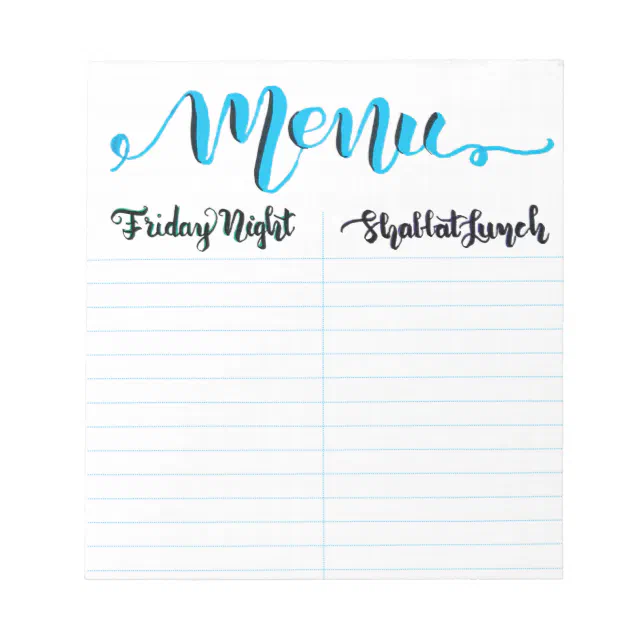 Menu
Friday Night Shabbat Lunch